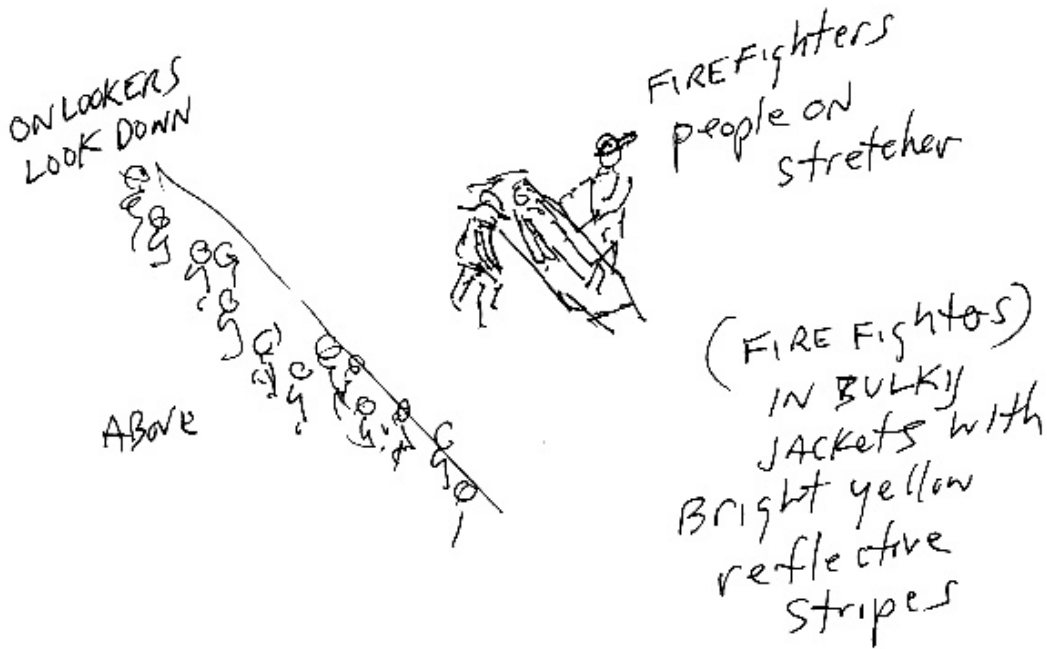 ONLOOKERS
LOOK DOWN
FIREFighters
people ON
stretcher
ABove
(FIRE Fightos)
IN BULKy
JACKets with
Bright yellow
reflective
stripes